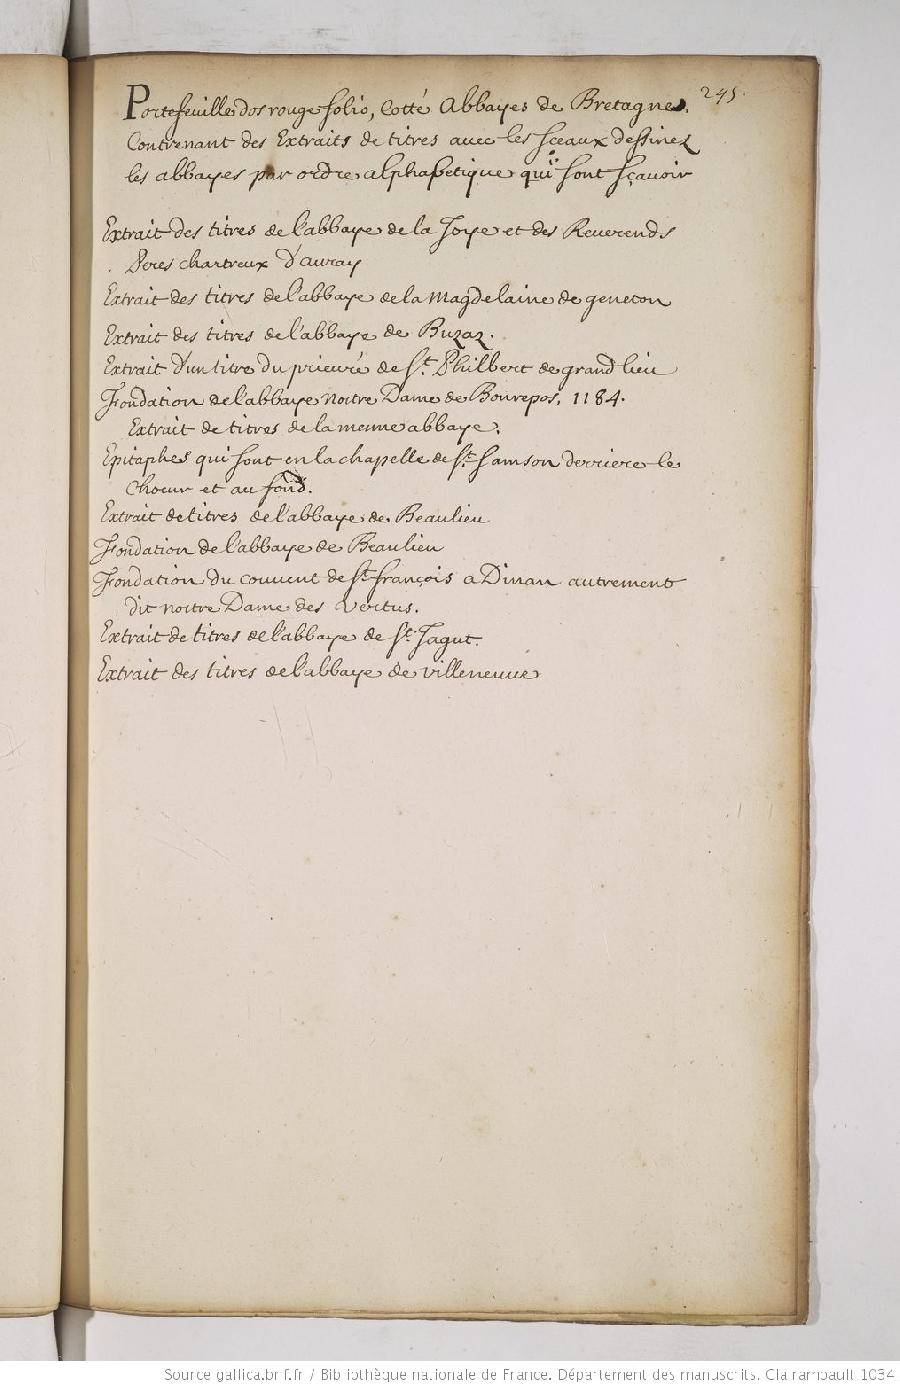 245.
Portefeuille dos rouge folio, cotté Abbayes de Bretagne.
Contenant des Extraits de titres avec les sceaux dessinez
les abbayes par ordre alphabetique qui sont sçauoir
Extrait des titres de l'abbaye de la Joye et des Reuerends
Peres chartreux d'auray
Extrait des titres de l'abbaye de la Magdelaine de geneton
Extrait des titres de l'abbaye de Buzaz.
Extrait d'un titre du prieuré de St. Philbert de grand lieu
Fondation de l'abbaye nostre Dame de Bonrepos, 1184.
Extrait de titres de la mesme abbaye.
Epitaphes qui sont en la chapelle de St. Samson derriere le
Choeur et au fond.
Extrait de titres de l'abbaye de Beaulieu
Fondation de l'abbaye de Beaulieu
Fondation du couuent de St françois a Dinan autrement
dit nostre Dame des Vertus.
Extrait de titres de l'abbaye de St. Jagut.
Extrait des titres de l'abbaye de villeneuue
Source gallica.bnf.fr / Bibliothèque nationale de France. Département des manuscrits. Clairambault 1034